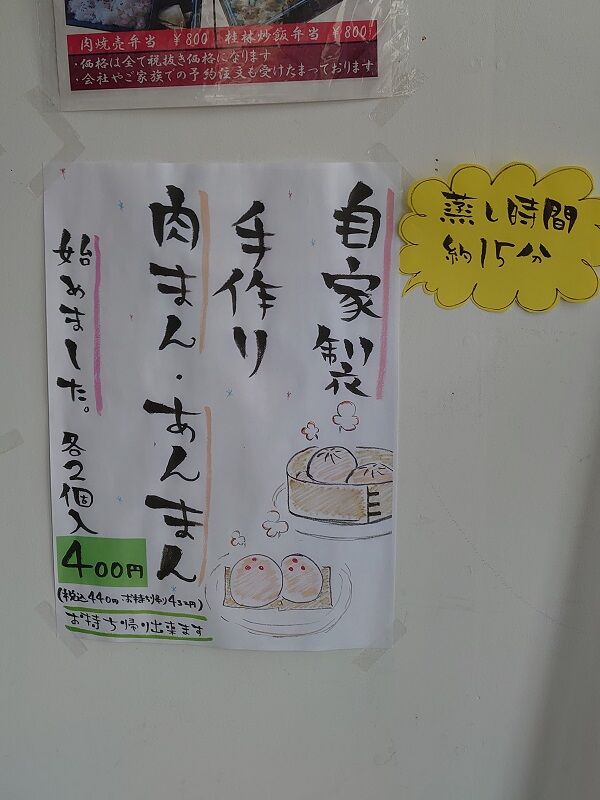 肉焼売弁当 ¥800 桂林炒飯弁当 ¥800
・価格は全て税抜き価格になります
・会社やご家族での予約注文も受けたまっております
自家製
手作り
肉まん・あんまん
始めました。各2個入
400円
(税込440円・お持ち帰り432円)
お持ち帰り出来ます
蒸し時間
約15分